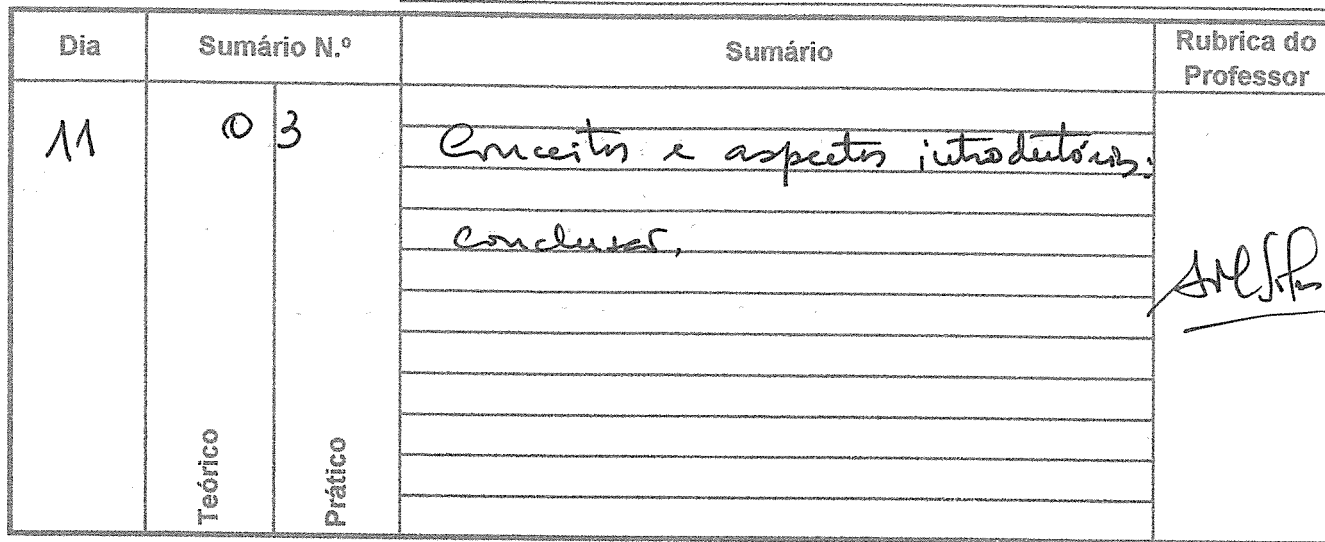 Dia Sumário N.º Sumário Rubrica do Professor
11 0 3 Conceitos e aspectos introdutórios:
conclusão.
Teórico Prático